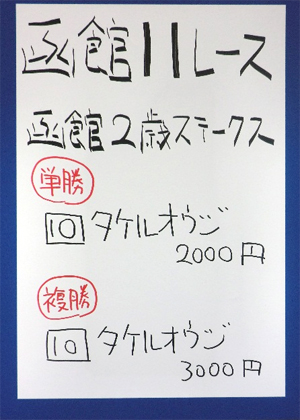 函館11レース
函館2歳ステークス
単勝
10 タケルオウジ
2000円
複勝
10 タケルオウジ
3000円